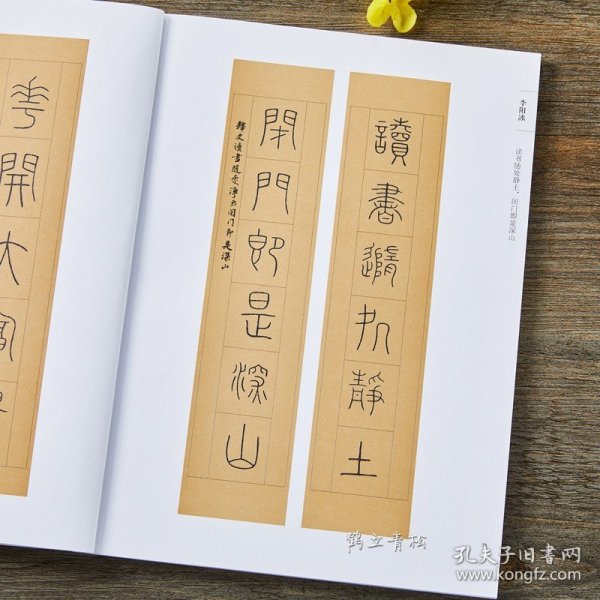 李阳冰
读书随处静土,闭门即是深山
讀書隨処靜土
閉門即是深山
释文读書随處淨土闭门即是深山
開大
鶴立青松
孔夫子旧书网
www.kongfz.com